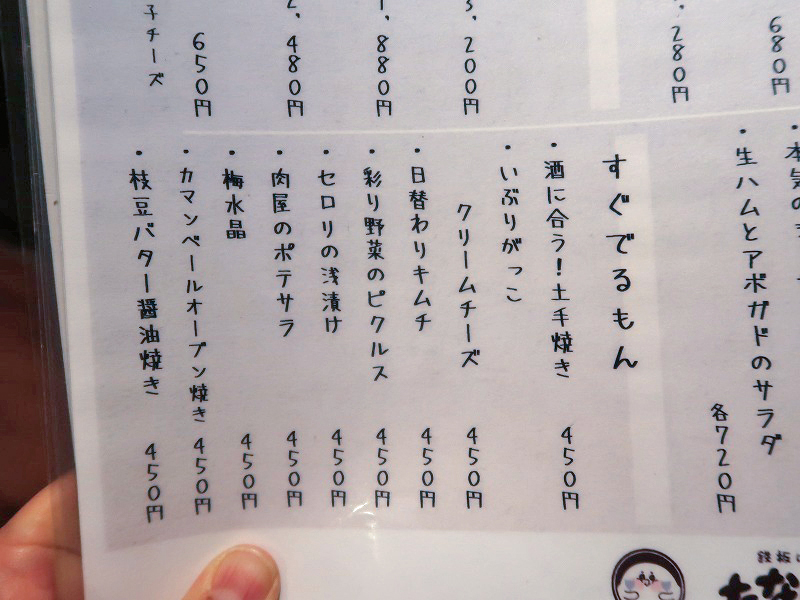 680円
280円
・生ハムとアボガドのサラダ
各720円
3,200円
,880円
2,480円
650円
子チーズ
すぐでるもん
・酒に合う!土手焼き 450円
・いぶりがっこ
クリームチーズ 450円
・日替わりキムチ 450円
・彩り野菜のピクルス 450円
・セロリの浅漬け 450円
・肉屋のポテサラ 450円
・梅水晶 450円
・カマンベールオーブン焼き 450円
・枝豆バター醤油焼き 450円
鉄板
たな